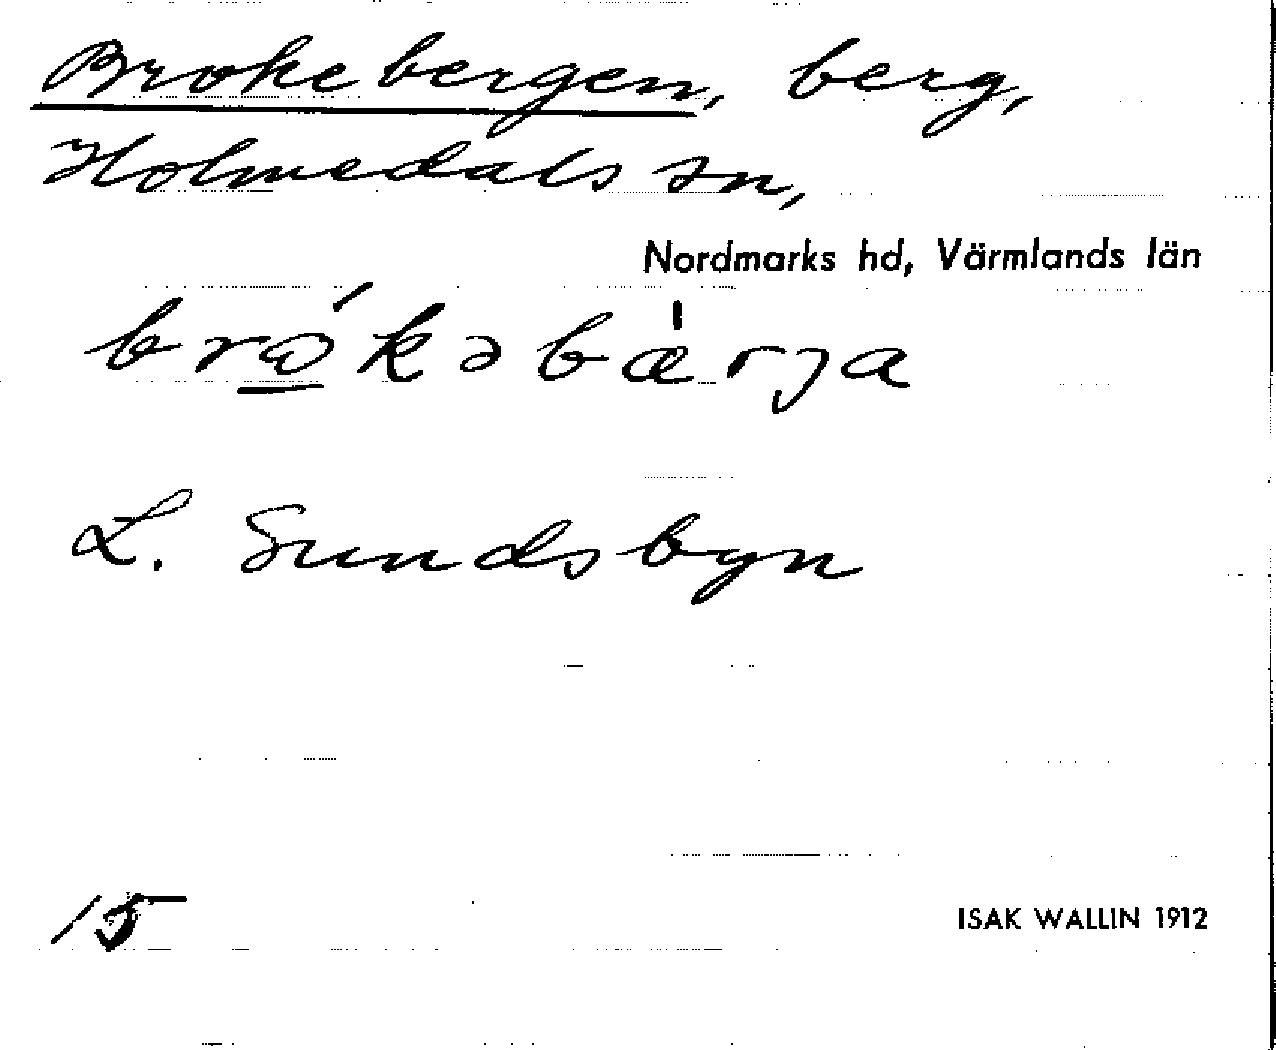 Brokebergen, berg,
Holmedals sn,
Nordmarks hd, Värmlands län
brώ̲kəbæ̍rȷa
L. Sundsbyn
15
ISAK WALLIN 1912